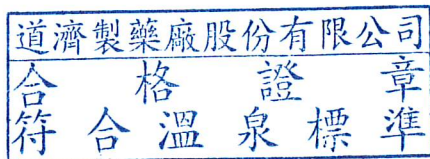 道濟製藥廠股份有限公司
合格證章
符合溫泉標準